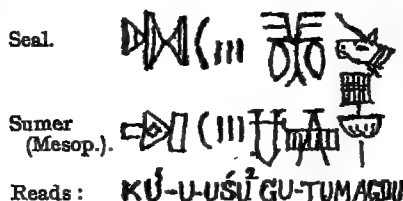 Seal.
Sumer
(Mesop.).
Reads: KU⁵-U-UŚU² GU-TUMAGDU